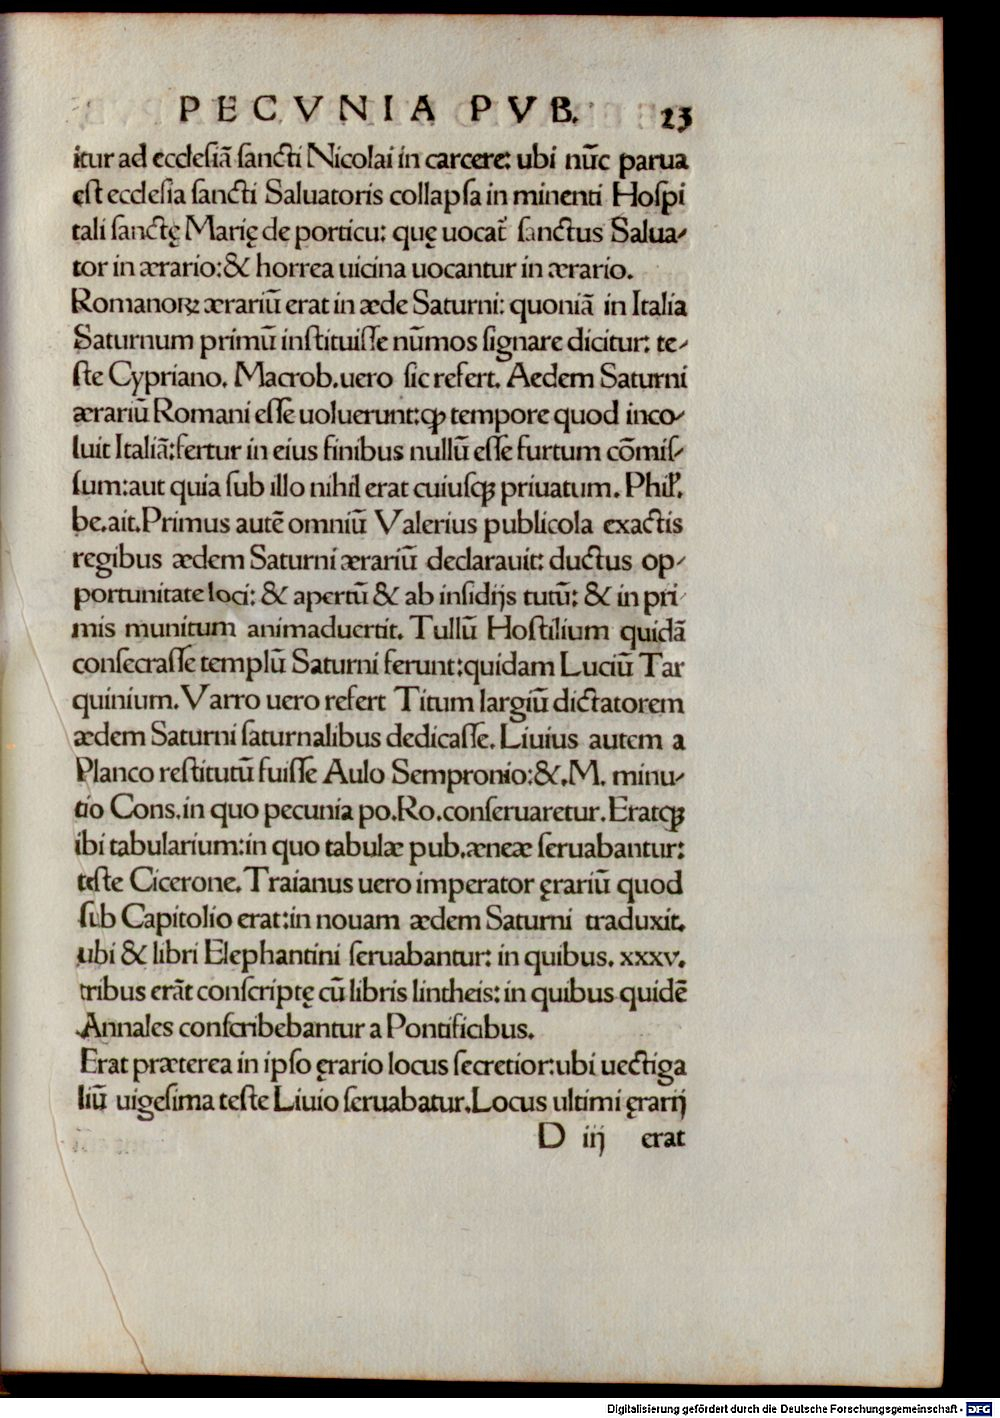 PECVNIA PVB. 23
itur ad ecclesiā sancti Nicolai in carcere: ubi nūc parua
est ecclesia sancti Saluatoris collapsa in minenti Hospi
tali sanctę Marię de porticu: quę uocat᷑ sanctus Salua-
tor in ærario: & horrea uicina uocantur in ærario.
Romanoꝝ ærariū erat in æde Saturni: quoniā in Italia
Saturnum primū instituisse nūmos signare dicitur: te-
ste Cypriano. Macrob. uero sic refert. Aedem Saturni
ærariū Romani esse uoluerunt: ꝙ tempore quod inco-
luit Italiā: fertur in eius finibus nullū esse furtum cōmis-
sum: aut quia sub illo nihil erat cuiusqꝫ priuatum. Philꝰ.
be. ait. Primus autē omniū Valerius publicola exactis
regibus ædem Saturni ærariū declarauit: ductus op-
portunitate loci: & apertū & ab insidijs tutū: & in pri-
mis munitum animaduertit. Tullū Hostilium quidā
consecrasse templū Saturni ferunt: quidam Luciū Tar
quinium. Varro uero refert Titum largiū dictatorem
ædem Saturni saturnalibus dedicasse. Liuius autem a
Planco restitutū fuisse Aulo Sempronio: &. M. minu-
tio Cons. in quo pecunia po. Ro. conseruaretur. Eratqꝫ
ibi tabularium: in quo tabulæ pub. æneæ seruabantur:
teste Cicerone. Traianus uero imperator ęrariū quod
sub Capitolio erat: in nouam ædem Saturni traduxit.
ubi & libri Elephantini seruabantur: in quibus. xxxv.
tribus erāt conscriptę cū libris lintheis: in quibus quidē
Annales conscribebantur a Pontificibus.
Erat præterea in ipso ęrario locus secretior: ubi uectiga
liū uigesima teste Liuio seruabatur. Locus ultimi ęrarij
D iij erat
Digitalisierung gefördert durch die Deutsche Forschungsgemeinschaft - DFG